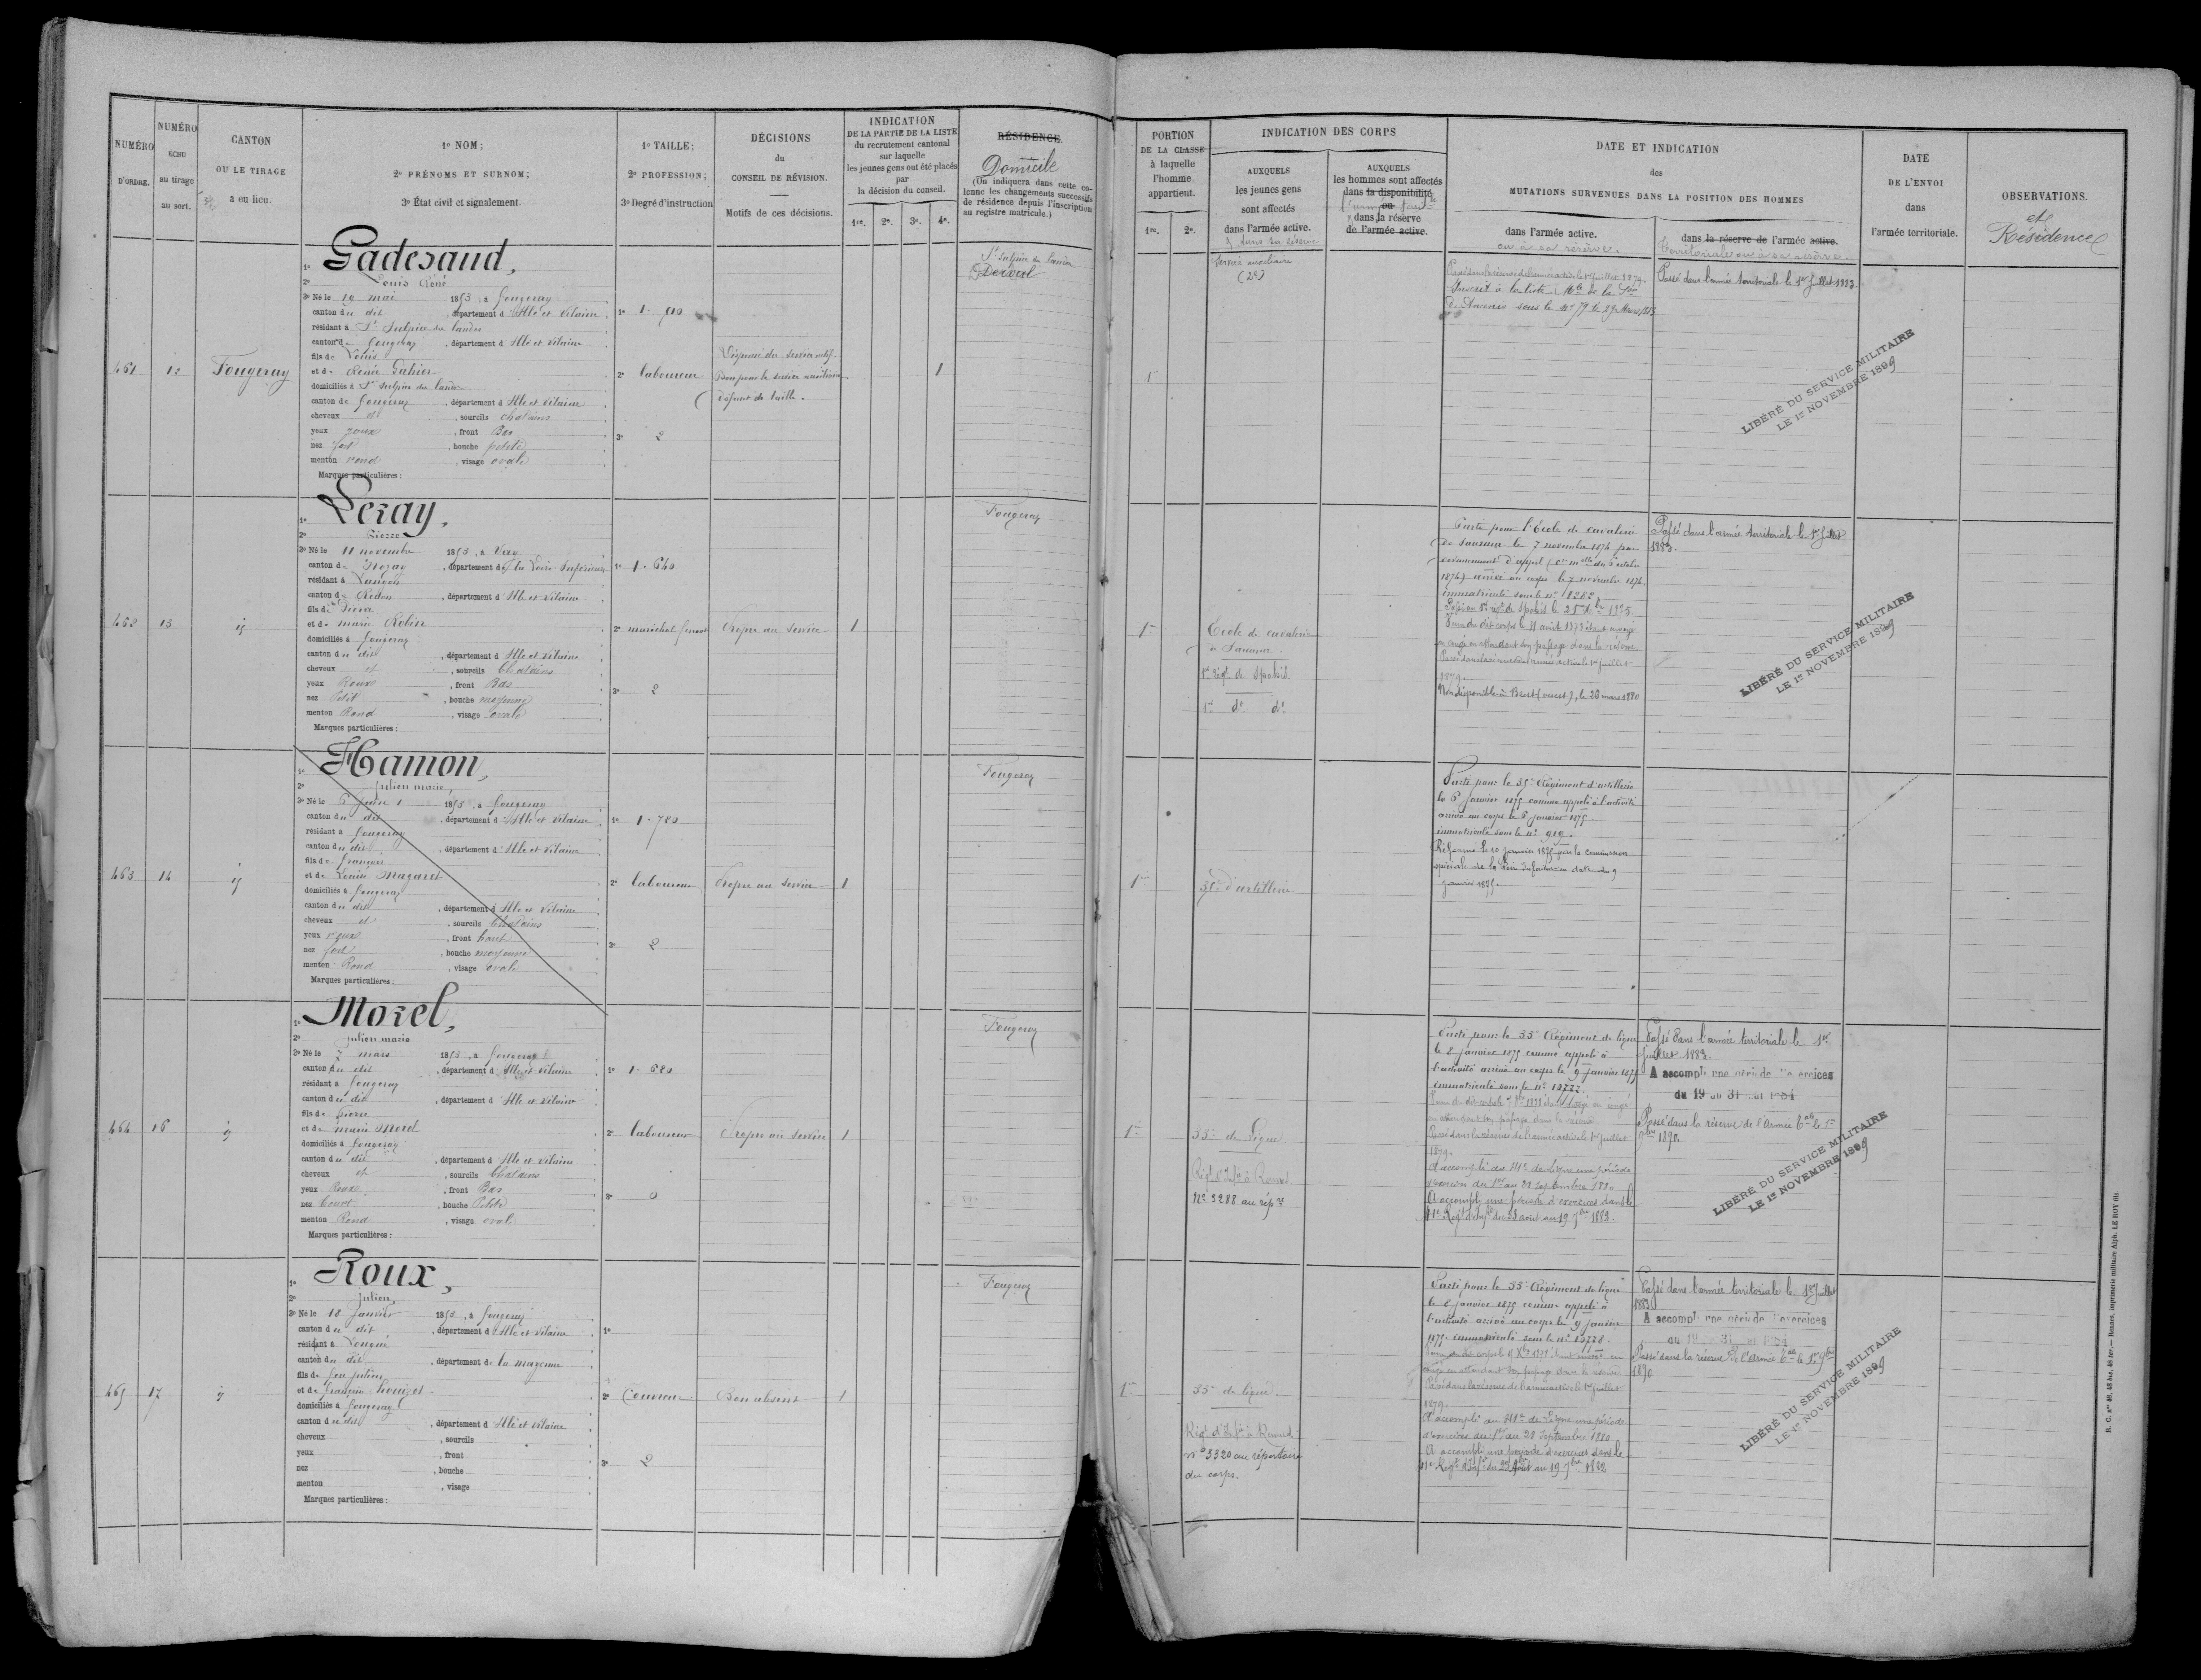 NUMÉRO
D'ORDRE.
NUMÉRO
ÉCHU
au tirage
au sort.
CANTON
OU LE TIRAGE
a eu lieu.
1º NOM;
2º PRÉNOMS ET SURNOM;
3º État civil et signalement.
1º TAILLE;
2º PROFESSION;
3º Degré d'instruction
DÉCISIONS
du
CONSEIL DE RÉVISION.
Motifs de ces décisions.
INDICATION
DE LA PARTIE DE LA LISTE
du recrutement cantonal
sur laquelle
les jeunes gens ont été placés
par
la décision du conseil.
1re. 2e. 3e. 4e.
RÉSIDENCE.
Domicile
(On indiquera dans cette co-
lonne les changements successifs
de résidence depuis l'inscription
au registre matricule.)
PORTION
DE LA CLASSE
à laquelle
l'homme
appartient.
1re. 2e.
INDICATION DES CORPS
AUXQUELS
les jeunes gens
sont affectés
dans l'armée active.
AUXQUELS
les hommes sont affectés
dans la disponibilité
ou
dans la réserve
de l'armée active.
DATE ET INDICATION
des
MUTATIONS SURVENUES DANS LA POSITION DES HOMMES
dans l'armée active.
ou à sa réserve.
dans la réserve de l'armée active.
Territoriale ou à sa réserve.
DATE
DE L'ENVOI
dans
l'armée territoriale.
OBSERVATIONS.
et
Résidence
461
12
Fougeray
Gadesaud,
Louis René
3º Né le 19 mai 1853, à fougeray
canton du dit, département d'Ille et Vilaine
résidant à St Sulpice des landes
canton de fougeray, département d'Ille et Vilaine
fils de Louis
et de Renée Gahier
domiciliés à St Sulpice des landes
canton de fougeray, département d'Ille et Vilaine
cheveux et, sourcils chatains
yeux roux, front Bas
nez fort, bouche petite
menton rond, visage ovale
Marques particulières:
2º laboureur
3º 2
Dispensé du service actif.
Bon pour le service auxiliaire.
défaut de taille.
1
St Sulpice des landes
Derval
1re
Service auxiliaire
Passé dans la réserve de l'armée active le 1er juillet 1879.
d'Ancenis sous le nº 79 le 29 Mars 1883
Passé dans l'armée territoriale le 1er Juillet 1883.
LIBÉRÉ DU SERVICE MILITAIRE
LE 1er NOVEMBRE 1899
462
13
id
Leray,
Pierre
3º Né le 11 novembre 1853, à Vay
canton de Nozay, département de la Loire Inférieure
résidant à Langon
canton de Redon, département d'Ille et Vilaine
fils de Pierre
et de marie Robin
domiciliés à fougeray
canton du dit, département d'Ille et Vilaine
cheveux et, sourcils Chatains
yeux Roux, front Bas
nez Petit, bouche moyenne
menton Rond, visage ovale
Marques particulières:
1º 1. 640
2º maréchal ferrant
3º 2
Propre au service
1
Fougeray
1re
Ecole de cavalerie
à Saumur
1er régt de Spahis
1er dº dº
Parti pour l'École de cavalerie
de Saumur le 7 novembre 1874 par
devancement d'appel
1874) arrivé au corps le 7 novembre 1874
immatriculé sous le nº 1282.
en congé en attendant son passage dans la réserve
Passé dans la réserve de l'armée active le 1er juillet
1879.
Non disponible à Brest (ouest), le 20 mars 1880
Passé dans l'armée territoriale le 1er Juillet
1883.
LIBÉRÉ DU SERVICE MILITAIRE
LE 1er NOVEMBRE 1899
463
14
id
Hamon,
Julien marie,
3º Né le 6 Juin 1853, à fougeray
canton du dit, département d'Ille et Vilaine
résidant à fougeray
canton du dit, département d'Ille et Vilaine
fils de françois
et de Louise Magaret
domiciliés à fougeray
canton du dit, département d'Ille et Vilaine
cheveux et, sourcils Chatains
yeux roux, front haut
nez fort, bouche moyenne
menton Rond, visage ovale
Marques particulières:
1º 1. 720
2º laboureur
3º 2
Propre au service
1
Fougeray
1re
35e d'artillerie
Parti pour le 35e Régiment d'artillerie
le 6 Janvier 1875 comme appelé à l'activité
arrivé au corps le 6 janvier 1875.
immatriculé sous le nº 919.
Réformé le 10 janvier 1875 par la commission
spéciale de la Loire Inférieure en date du 9
janvier 1875.
464
16
id
Morel,
Julien marie
3º Né le 7 mars 1853, à fougeray
canton du dit, département d'Ille et Vilaine
résidant à fougeray
canton du dit, département d'Ille et Vilaine
fils de Pierre
et de marie Morel
domiciliés à fougeray
canton du dit, département d'Ille et Vilaine
cheveux et, sourcils Chatains
yeux Roux, front Bas
nez Court, bouche Petite
menton Rond, visage ovale
Marques particulières:
1º 1. 620
2º laboureur
3º 0
Propre au service
1
Fougeray
1re
33e de Ligne
Nº 3288 au rép re
Parti pour le 33e Régiment de ligne
le 8 janvier 1875 comme appelé à
l'activité arrivé au corps le 9 janvier 1875
en attendant son passage dans la réserve
Passé dans la réserve de l'armée active le 1er Juillet
1879.
A accompli au 41e de Ligne une période
d'exercices du 1er au 28 septembre 1880
A accompli une période d'exercices dans le
41e Regt d'Infie du 23 août au 19 7bre 1882.
Passé dans l'armée territoriale le 1er
Juillet 1883.
A accompli une période d'exercices
du 19 au 31 1884
Passé dans la réserve de l'Armée Tale le 1er
9bre 1890.
LIBÉRÉ DU SERVICE MILITAIRE
LE 1er NOVEMBRE 1899
465
17
id
Roux,
Julien
3º Né le 18 Janvier 1853, à fougeray
canton du dit, département d'Ille et Vilaine
résidant à
canton du dit, département de la mayenne
fils de feu julien
et de françoise
domiciliés à fougeray
canton du dit, département d'Ille et Vilaine
cheveux , sourcils
yeux , front
nez , bouche
menton , visage
Marques particulières:
1º
2º Couvreur
3º 2
Bon absent
1
Fougeray
1re
33e de ligne.
nº 3320 au répertoire
du corps.
Parti pour le 33e Régiment de ligne
le 8 janvier 1875 comme appelé à
l'activité arrivé au corps le 9 janvier
1875 immatriculé sous le nº 13778.
congé en attendant son passage dans la réserve
Passé dans la réserve de l'armée active le 1er Juillet
1879.
A accompli au 41e de Ligne une période
d'exercices du 1er au 28 Septembre 1880
A accompli une période d'exercices dans le
41e Regt d'Infie du 23 Août au 19 7bre 1882
Passé dans l'armée territoriale le 1er Juillet
1883
A accompli une période d'exercices
Passé dans la réserve de l'Armée Tale le 1er 9bre
1890
LIBÉRÉ DU SERVICE MILITAIRE
LE 1er NOVEMBRE 1899
R. C. nos 48, 48 bis, 48 ter. — Rennes, imprimerie militaire Alph. LE ROY fils.